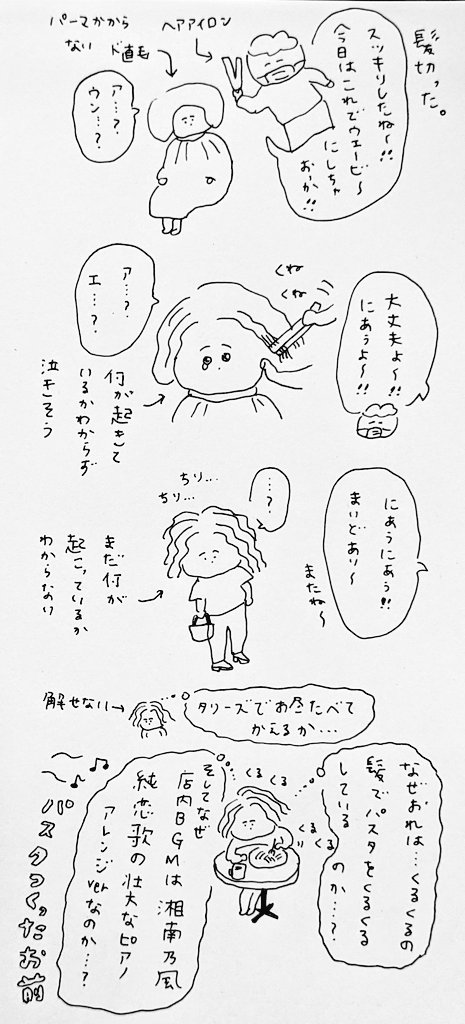 髪切った。
スッキリしたね〜!!
今日はこれでウェービ〜
にしちゃ
おっか!!
ヘアアイロン
パーマかから
ない ド直毛
ア…?
ウン…?
大丈夫よ〜!!
にあうよ〜!!
くね
くね
ア…?
エ…?
何が起きて
いるかわからず
泣きそう
にあうにあう!!
まいどあり〜
またね〜
…?
ちり…
ちり…
まだ何が
起こっているか
わからない
タリーズでお昼たべて
かえるか…
解せない
なぜおれは…くるくるの
髪でパスタをくるくる
している
のか…?
くる
くる
くる
くる
そしてなぜ
店内BGMは湘南乃風
純恋歌の壮大なピアノ
アレンジverなのか…?
パスタつくったお前